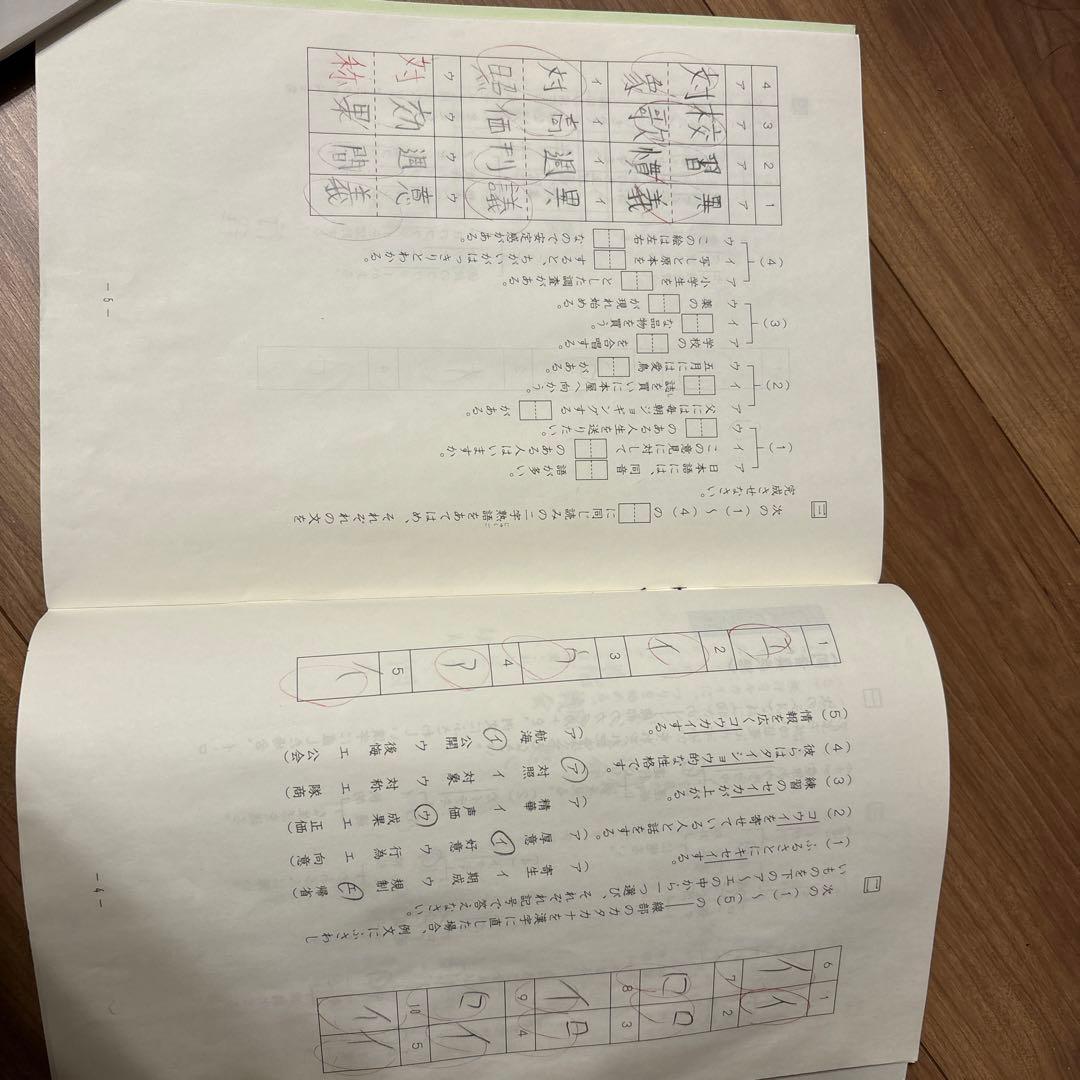 二
次の(1)～(5)の　線部のカタカナを漢字に直した場合、例文にふさわし
いものを下のア～エの中から一つ選び、それぞれ記号で答えなさい。
(1) ふるさとにキセイする。
ア 寄生 イ 期成 ウ 規制 エ 帰省)
(2) コウイを寄せている人と話をする。
ア 厚意 イ 好意 ウ 行為 エ 向意)
(3) 練習のセイカが上がる。
ア 精華 イ 声価 ウ 成果 エ 正価)
(4) 彼らはタイショウ的な性格です。
ア 対照 イ 対象 ウ 対称 エ 隊商)
(5) 情報を広くコウカイする。
ア 航海 イ 公開 ウ 後悔 エ 公会)
1 エ 2 イ 3 ウ 4 ア 5 イ
－4－
三
次の(1)～(4)の　に同じ読みの二字熟語をあてはめ、それぞれの文を
じゅくご
完成させなさい。
(1)
ア 日本語には、同音　語が多い。
イ この意見に対して　のある人はいますか。
ウ 　のある人生を送りたい。
(2)
ア 父には毎朝ジョギングする　がある。
イ 　誌を買いに本屋へ向かう。
し
ウ 五月には愛鳥　がある。
(3)
ア 学校の　を合唱する。
イ 　な品物を買う。
ウ 薬の　が現れ始める。
(4)
ア 小学生を　とした調査がある。
イ 写しと原本を　すると、ちがいがはっきりとわかる。
ウ この絵は左右　なので安定感がある。
1 ア 異義 イ 異議 ウ 意義
2 ア 習慣 イ 週刊 ウ 週間
3 ア 校歌 イ 高価 ウ 効果
4 ア 対象 イ 対照 ウ 対称
－5－